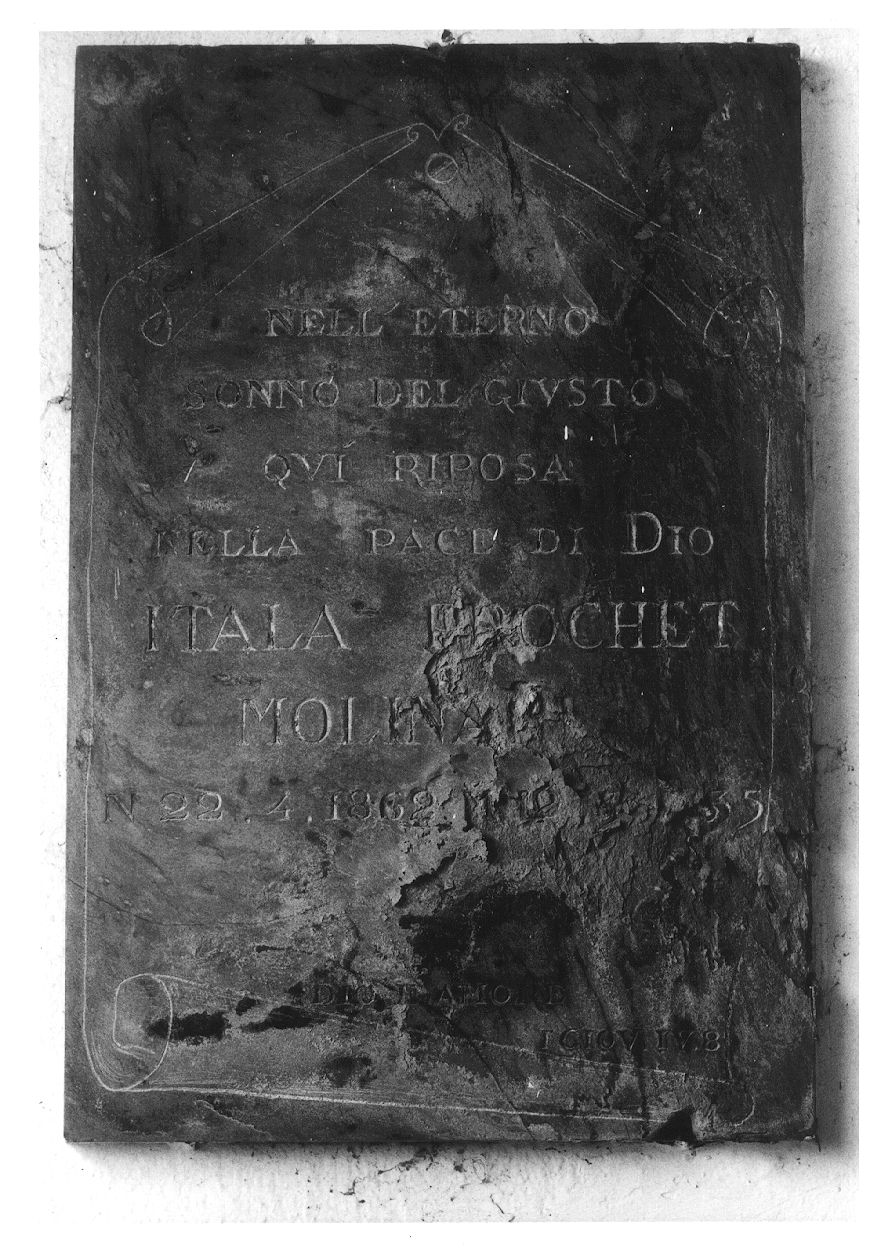 NELL' ETERNO
SONNO DEL GIVSTO
QVÍ RIPOSA
NELLA PACE DI DIO
ITALA PROCHET
MOLINARI
N 22.4.1862 M 12
DIO È AMORE
I GIOV. IV. 8